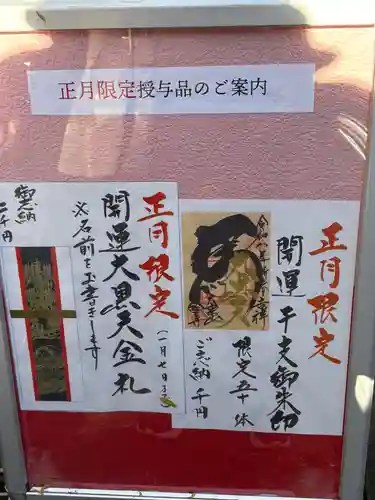 正月限定授与品のご案内
正月限定
開運 干支御朱印
限定五十体
ご志納 千円
正月限定
(一月七日迄)
開運大黒天金札
※名前をお書きします
御志納
二千円